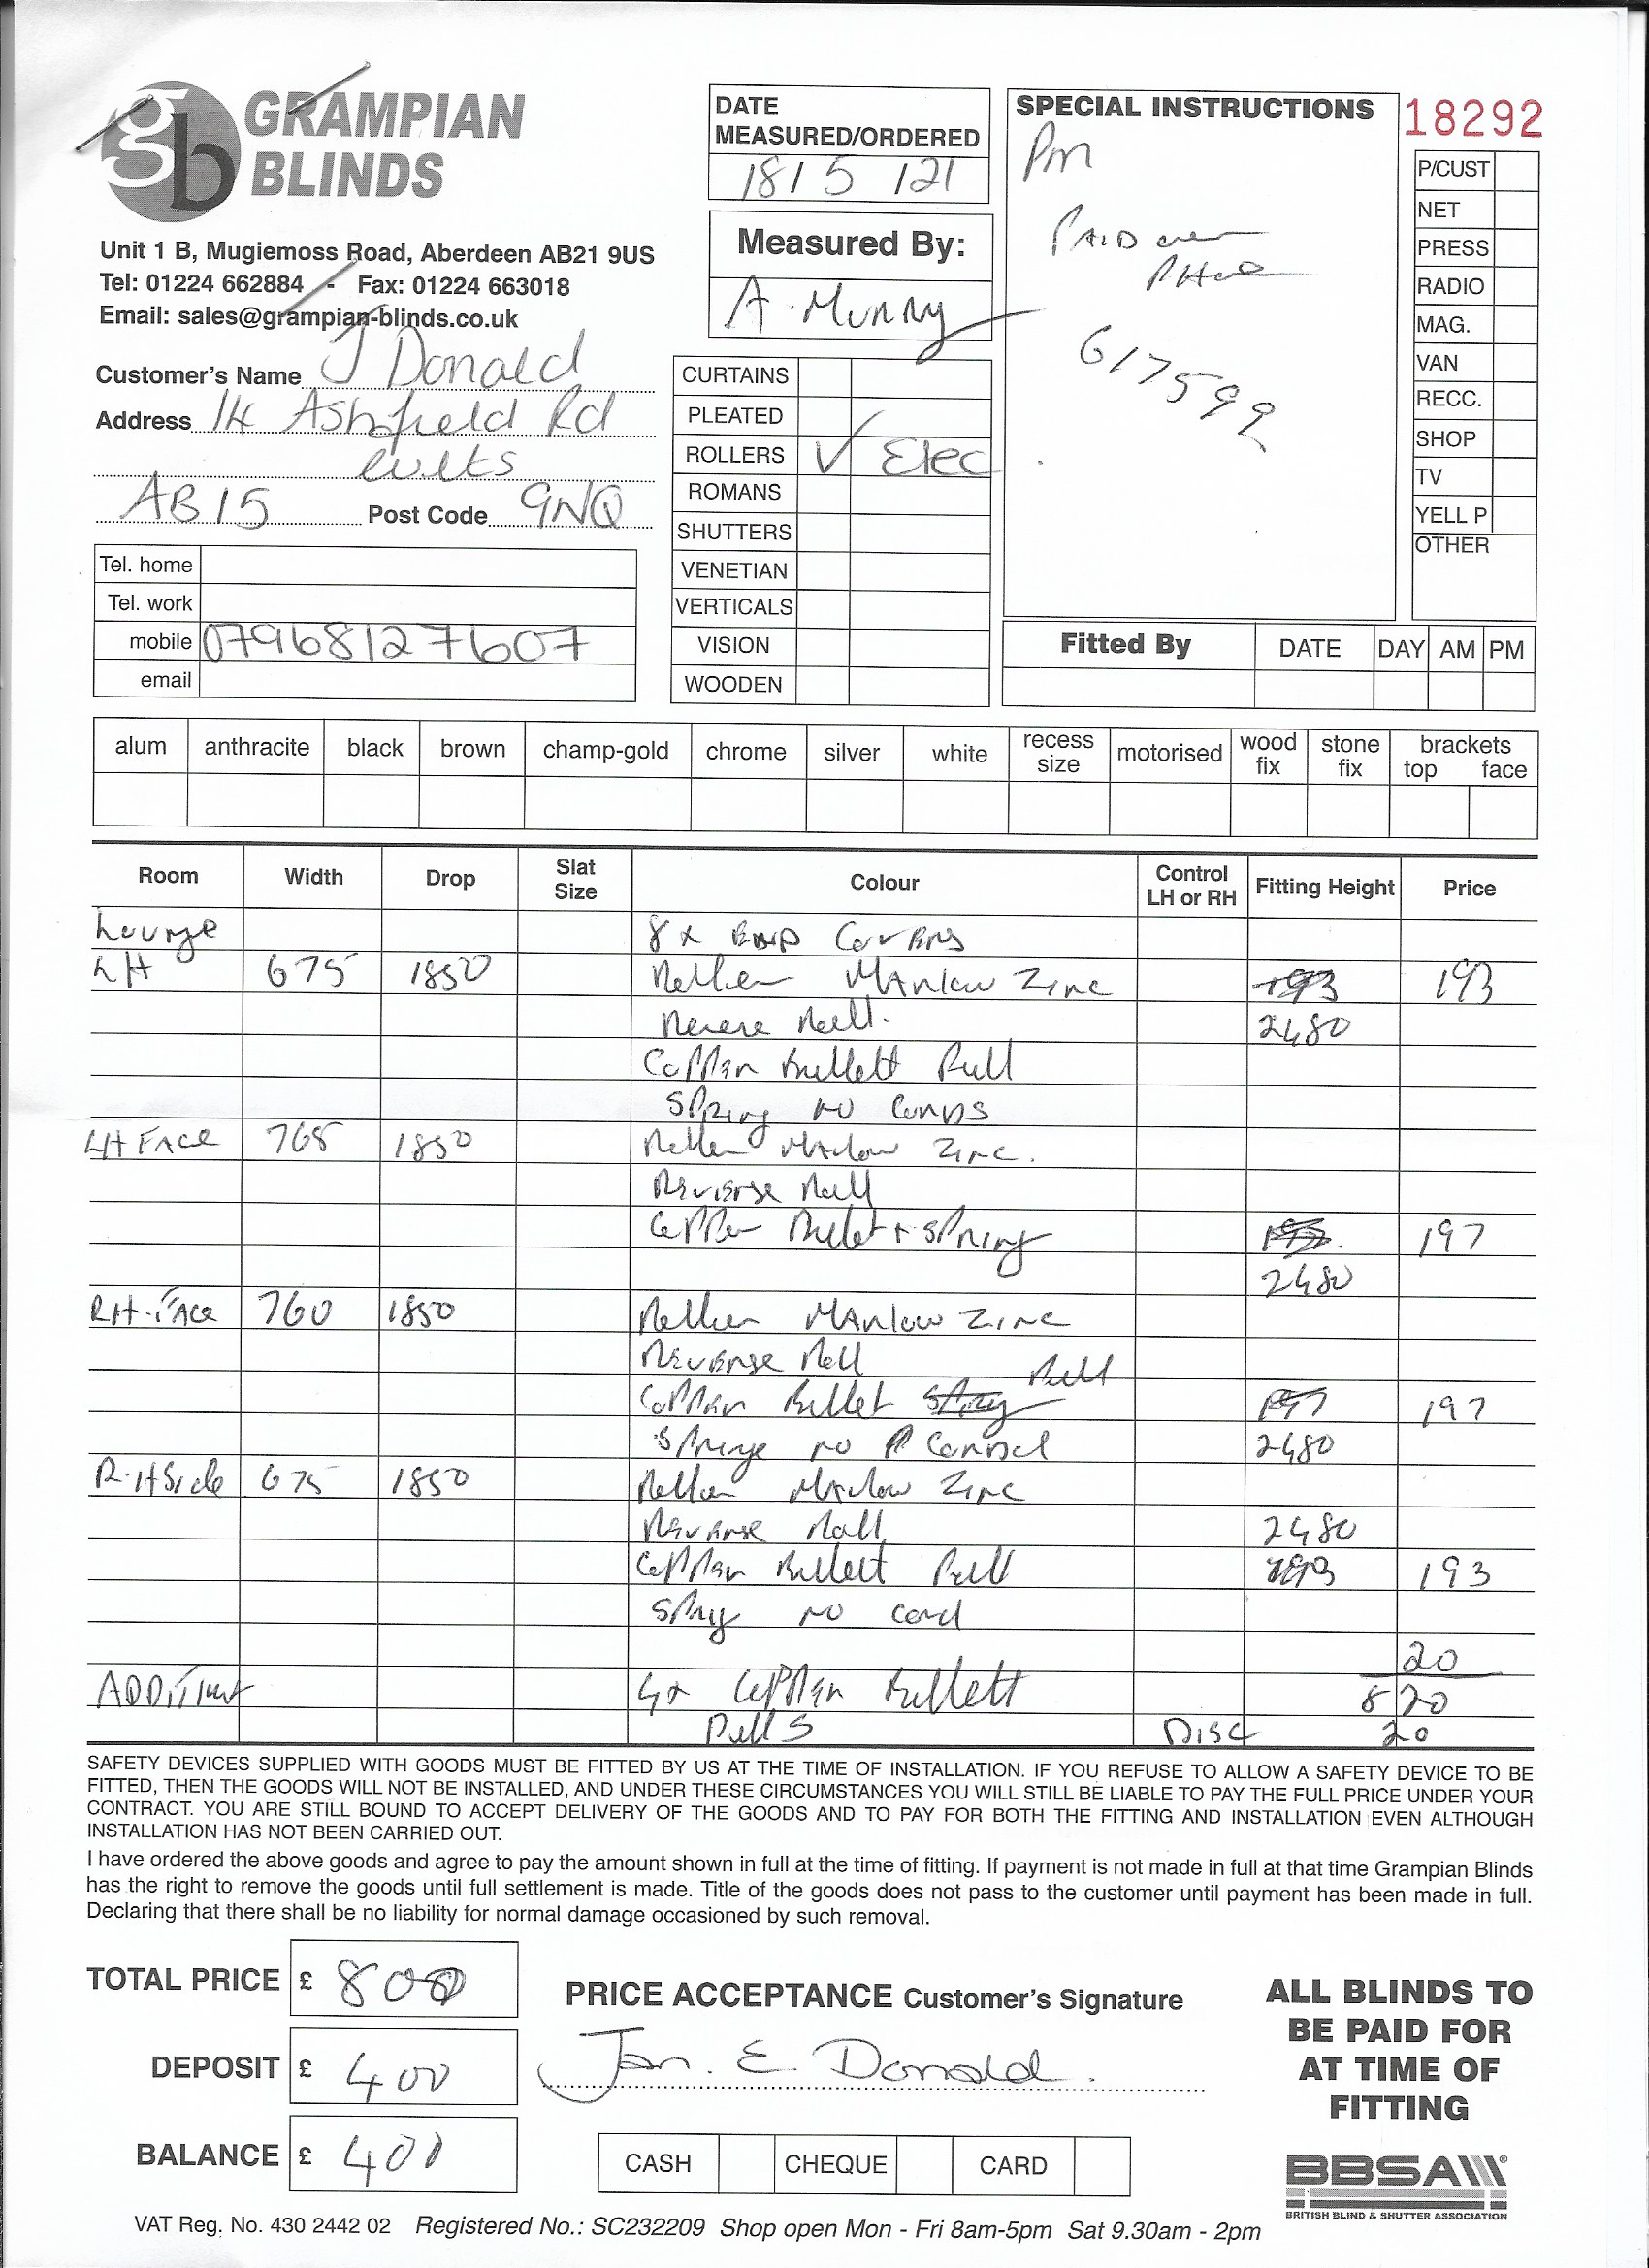 GRAMPIAN
BLINDS
gb
Unit 1 B, Mugiemoss Road, Aberdeen AB21 9US
Tel: 01224 662884 - Fax: 01224 663018
Email: sales@grampian-blinds.co.uk
Customer's Name J Donald
Address 14 Ashfield Rd
Cults
AB15 Post Code 9NQ
Tel. home
Tel. work
mobile 07968127607
email
DATE
MEASURED/ORDERED
18/5/21
Measured By:
A. Murray
CURTAINS
PLEATED
ROLLERS ✓ Elec
ROMANS
SHUTTERS
VENETIAN
VERTICALS
VISION
WOODEN
SPECIAL INSTRUCTIONS
Pm
PAID over
Phone
617599
18292
P/CUST
NET
PRESS
RADIO
MAG.
VAN
RECC.
SHOP
TV
YELL P
OTHER
Fitted By DATE DAY AM PM
alum anthracite black brown champ-gold chrome silver white recess size motorised wood fix stone fix brackets top face
Room Width Drop Slat Size Colour Control LH or RH Fitting Height Price
Lounge 8 x End Covers
LH 675 1850 Roller Marlow Zinc 193 193
Reverse Roll. 2480
Copper Bullett Pull
Spring no Cords
LH FACE 765 1850 Roller Marlow Zinc.
Reverse Roll
Copper Bullet + Spring 197
2480
RH. FACE 760 1850 Roller Marlow Zinc
Reverse Roll Pull
Copper Bullet Spring 197 197
Spring no Control 2480
R.H Side 675 1850 Roller Marlow Zinc
Reverse Roll 2480
Copper Bullett Pull 193 193
Spring no cord
20
ADDITIONAL 4x Copper Bullett 820
Pulls DISC 20
SAFETY DEVICES SUPPLIED WITH GOODS MUST BE FITTED BY US AT THE TIME OF INSTALLATION. IF YOU REFUSE TO ALLOW A SAFETY DEVICE TO BE
FITTED, THEN THE GOODS WILL NOT BE INSTALLED, AND UNDER THESE CIRCUMSTANCES YOU WILL STILL BE LIABLE TO PAY THE FULL PRICE UNDER YOUR
CONTRACT. YOU ARE STILL BOUND TO ACCEPT DELIVERY OF THE GOODS AND TO PAY FOR BOTH THE FITTING AND INSTALLATION EVEN ALTHOUGH
INSTALLATION HAS NOT BEEN CARRIED OUT.
I have ordered the above goods and agree to pay the amount shown in full at the time of fitting. If payment is not made in full at that time Grampian Blinds
has the right to remove the goods until full settlement is made. Title of the goods does not pass to the customer until payment has been made in full.
Declaring that there shall be no liability for normal damage occasioned by such removal.
TOTAL PRICE £ 800
DEPOSIT £ 400
BALANCE £ 400
PRICE ACCEPTANCE Customer's Signature
Jan. E. Donald.
CASH CHEQUE CARD
ALL BLINDS TO
BE PAID FOR
AT TIME OF
FITTING
BBSA
BRITISH BLIND & SHUTTER ASSOCIATION
VAT Reg. No. 430 2442 02 Registered No.: SC232209 Shop open Mon - Fri 8am-5pm Sat 9.30am - 2pm